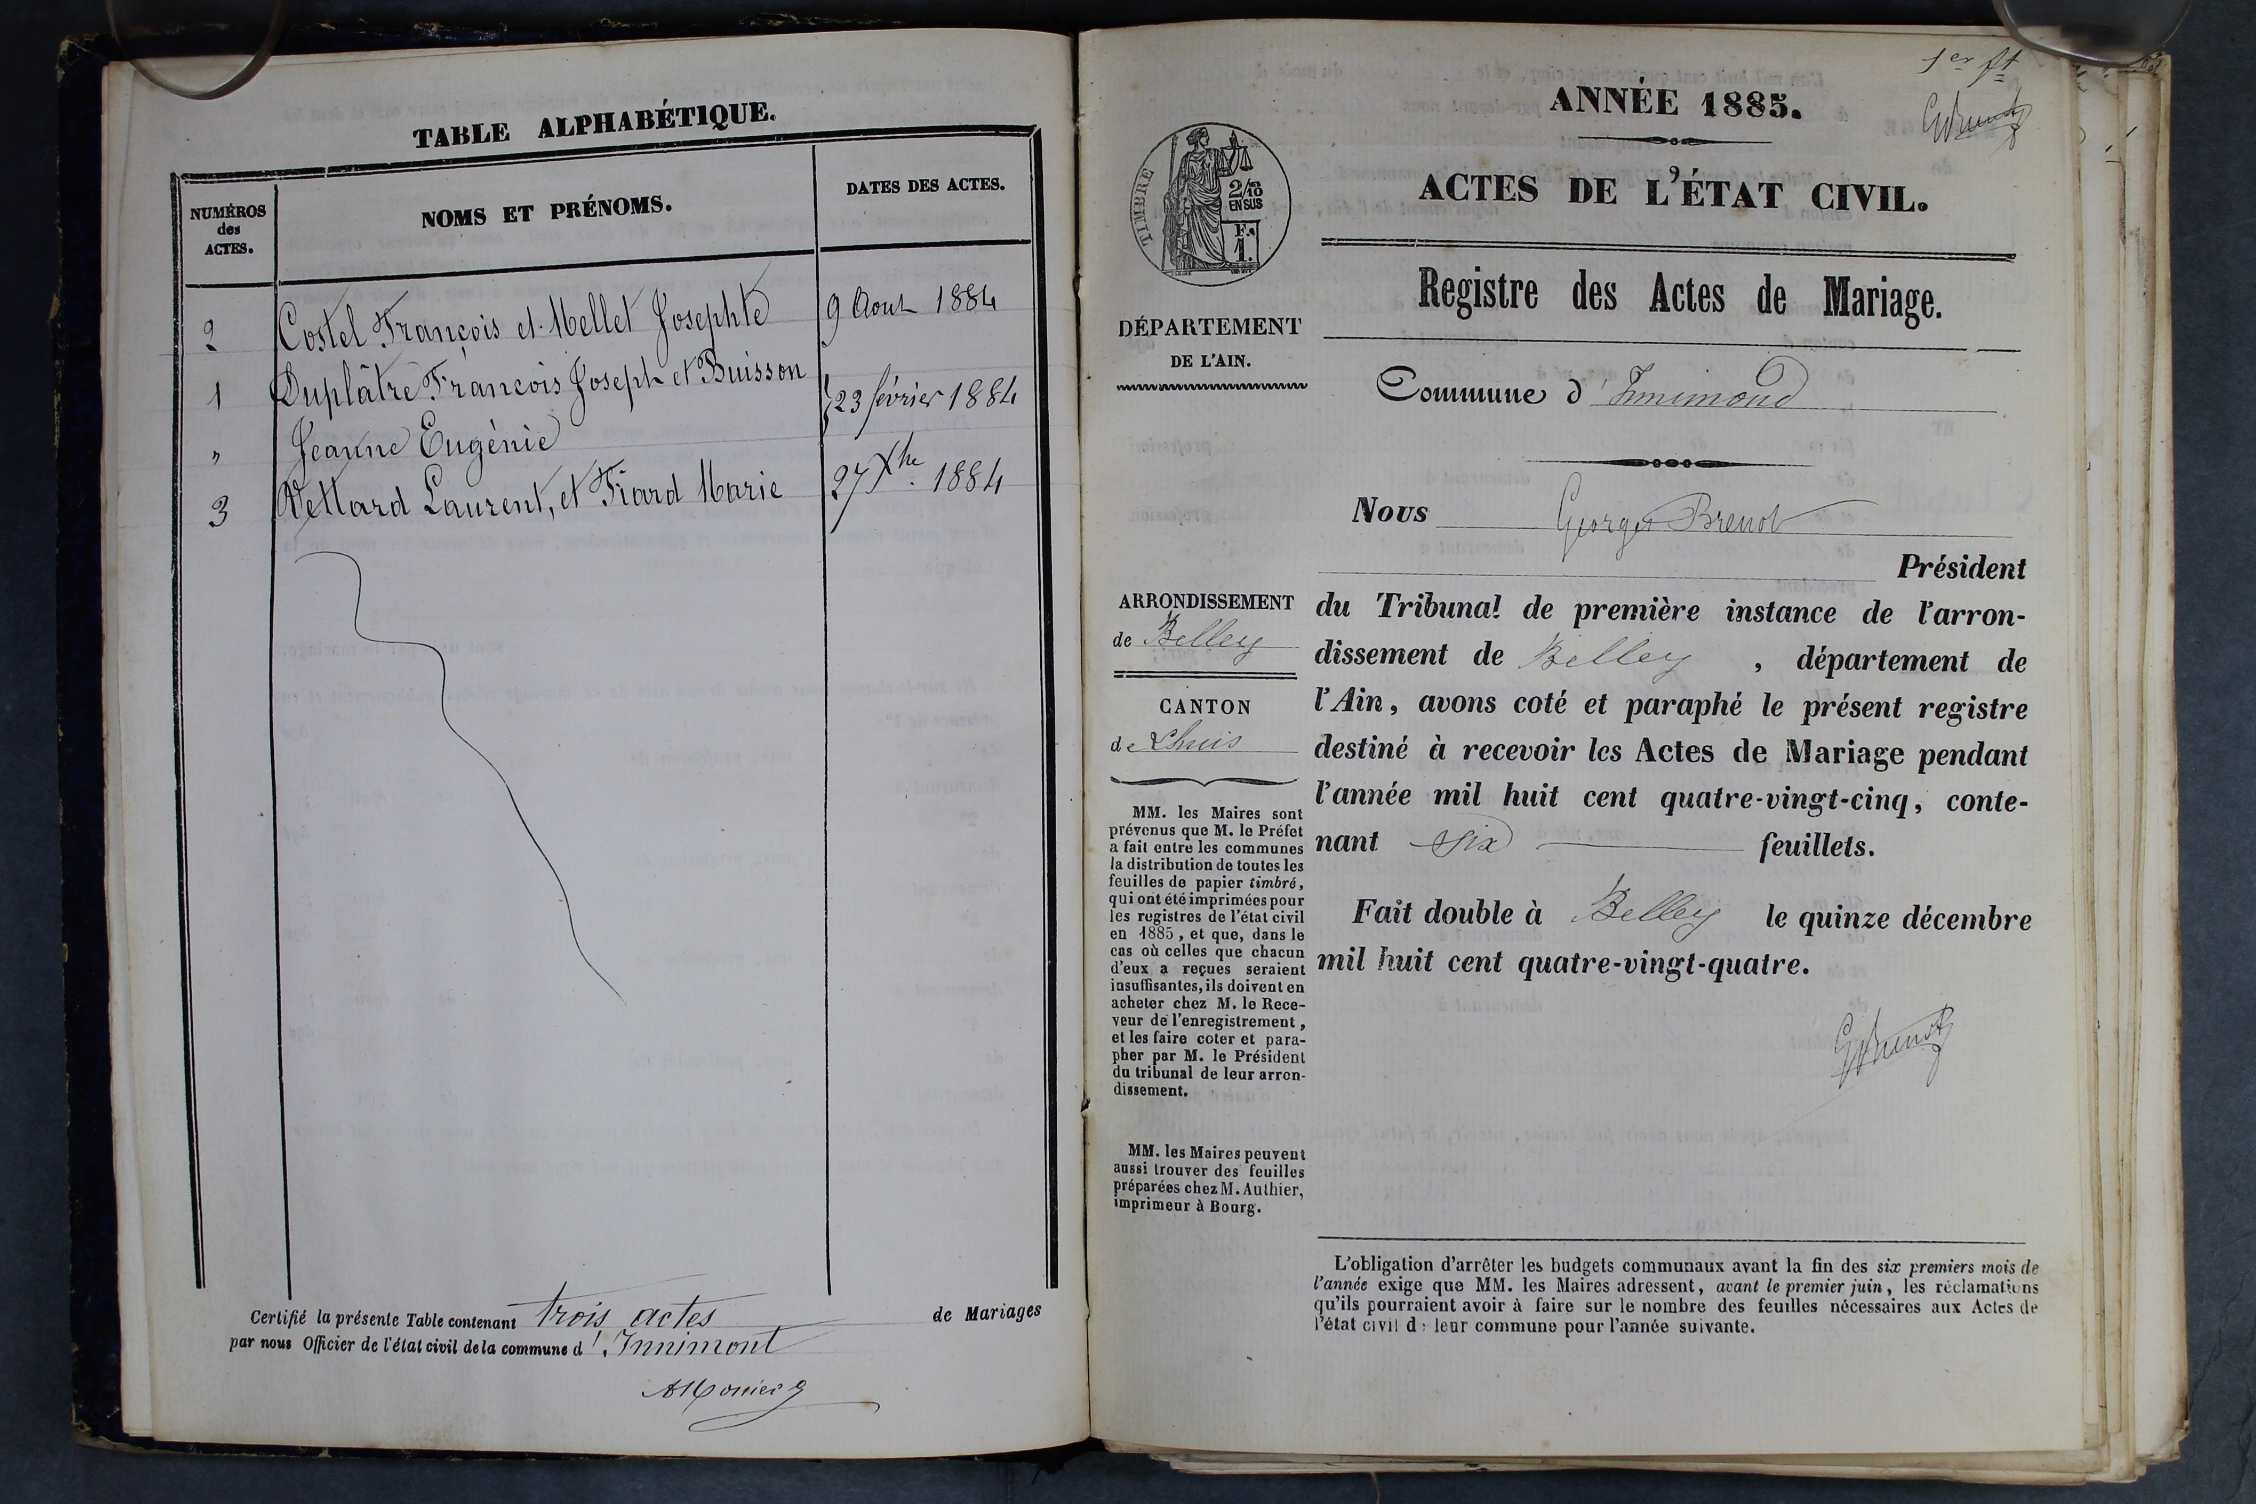 TABLE ALPHABÉTIQUE.
NUMÉROS
des
ACTES.
NOMS ET PRÉNOMS.
DATES DES ACTES.
2 Costel François et Mellet Josephte 9 Aout 1884
1 Duplâtre François Joseph et Buisson } 23 février 1884
" Jeanne Eugénie
3 Vettard Laurent, et Tiard Marie 27 Xbre 1884
Certifié la présente Table contenant trois actes de Mariages
par nous Officier de l'état civil de la commune d'Innimont
1er ft
ANNÉE 1885.
TIMBRE
2/10
EN SUS
1.
ACTES DE L'ÉTAT CIVIL.
Registre des Actes de Mariage.
DÉPARTEMENT
DE L'AIN.
Commune d'Innimond
Nous Georges Brenot
Président
du Tribunal de première instance de l'arron-
dissement de Belley, département de
l'Ain, avons coté et paraphé le présent registre
destiné à recevoir les Actes de Mariage pendant
l'année mil huit cent quatre-vingt-cinq, conte-
nant six feuillets.
Fait double à Belley le quinze décembre
mil huit cent quatre-vingt-quatre.
ARRONDISSEMENT
de Belley
CANTON
de Lhuis
MM. les Maires sont
prévenus que M. le Préfet
a fait entre les communes
la distribution de toutes les
feuilles de papier timbré,
qui ont été imprimées pour
les registres de l'état civil
en 1885, et que, dans le
cas où celles que chacun
d'eux a reçues seraient
insuffisantes, ils doivent en
acheter chez M. le Rece-
veur de l'enregistrement,
et les faire coter et para-
pher par M. le Président
du tribunal de leur arron-
dissement.
MM. les Maires peuvent
aussi trouver des feuilles
préparées chez M. Authier,
imprimeur à Bourg.
L'obligation d'arrêter les budgets communaux avant la fin des six premiers mois de
l'année exige que MM. les Maires adressent, avant le premier juin, les réclamations
qu'ils pourraient avoir à faire sur le nombre des feuilles nécessaires aux Actes de
l'état civil de leur commune pour l'année suivante.